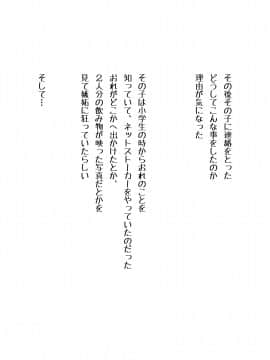 その後その子に連絡をとった
どうしてこんな事をしたのか
理由が気になった
その子は小学生の時からおれのことを
知っていて、ネットストーカーをやっていたのだった
おれがどこかへ出かけたとか、
2人分の飲み物が映った写真だとかを
見て嫉妬に狂っていたらしい
そして…